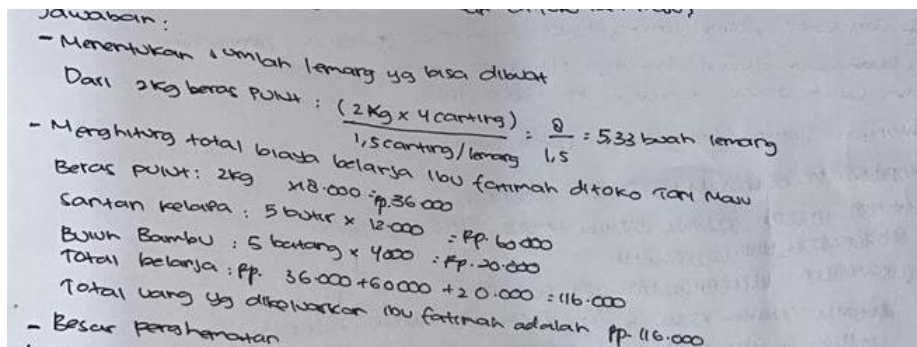 Jawaban :
- Menentukan jumlah lemang yg bisa dibuat
Dari 2kg beras pulut : (2 Kg x 4 canting) / 1,5 canting/lemang = 8 / 1,5 = 5,33 buah lemang
- Menghitung total biaya belanja Ibu fatimah ditoko Tani Maju
Beras pulut : 2kg x 18.000 = Rp. 36.000
Santan kelapa : 5 butir x 12.000 = Rp. 60.000
Buluh Bambu : 5 batang x 4000 = Rp. 20.000
Total belanja : Rp. 36.000 + 60000 + 20.000 = 116.000
Total uang yg dikeluarkan ibu fatimah adalah Rp. 116.000
- Besar penghematan